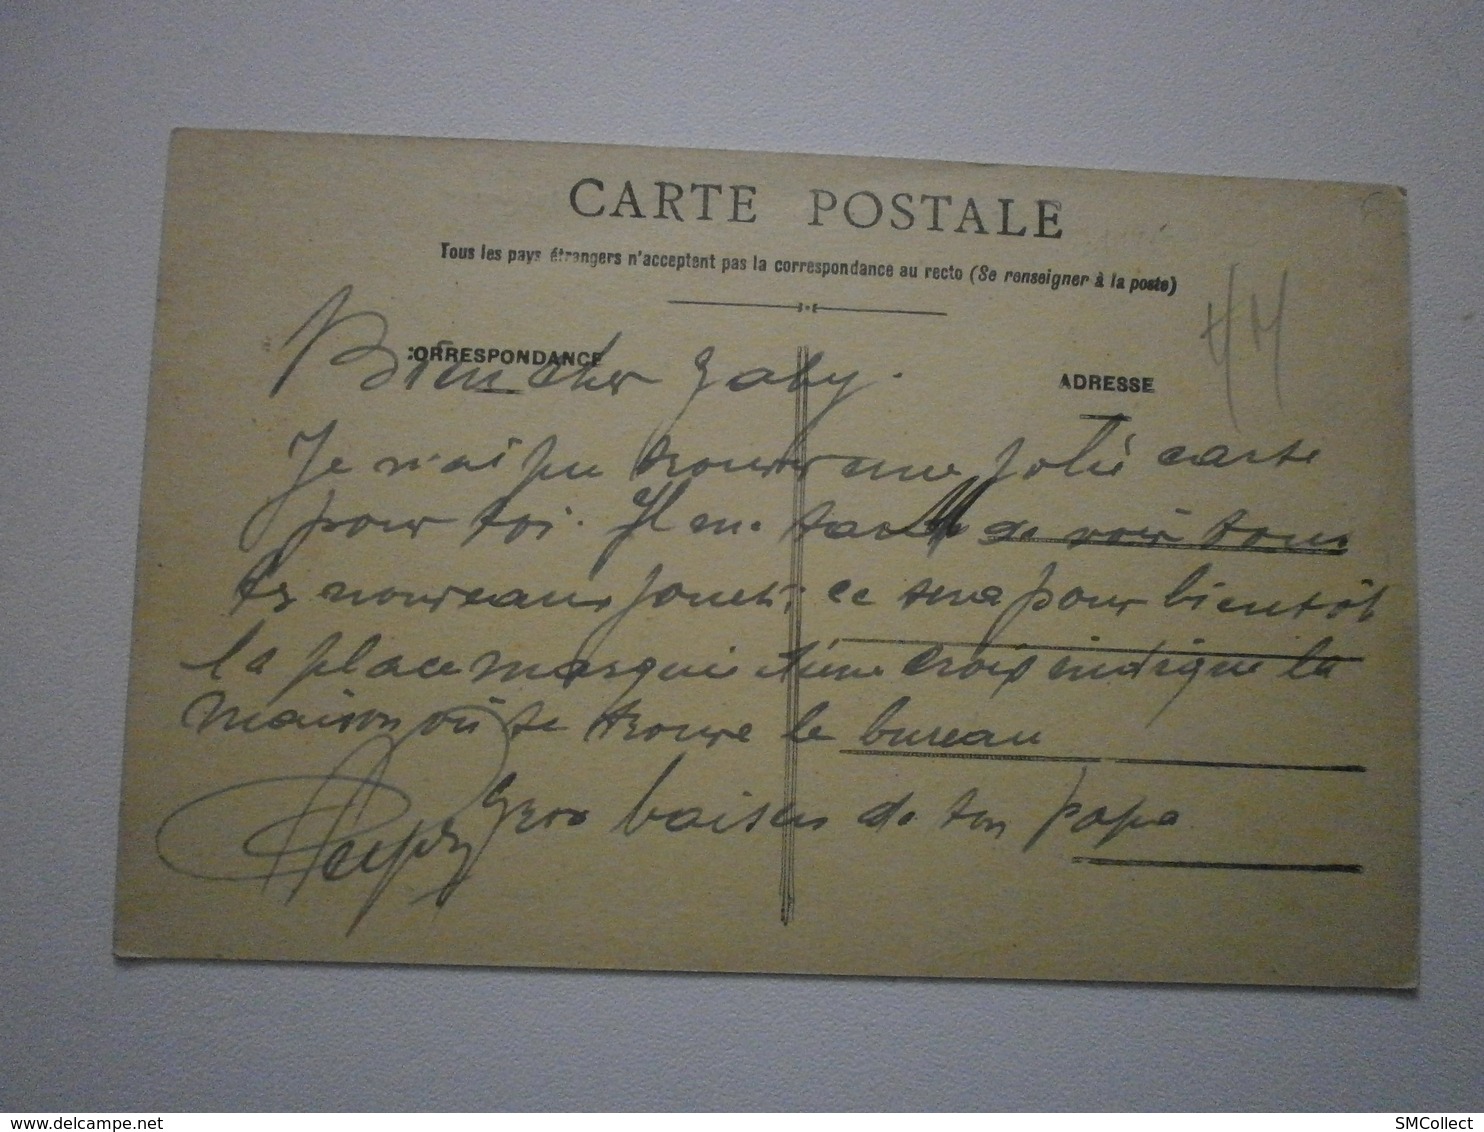 CARTE POSTALE
Tous les pays étrangers n'acceptent pas la correspondance au recto (Se renseigner à la poste)
CORRESPONDANCE
ADRESSE
Bien cher Gaby.
Je n'ai pu trouver une jolie carte
pour toi. Il me tarde de voir tous
tes nouveaux jouets; ce sera pour bientôt
la place marquée d'une croix indique la
maison où se trouve le bureau
Gros baisers de ton papa
© SMCollect
delcampe.net